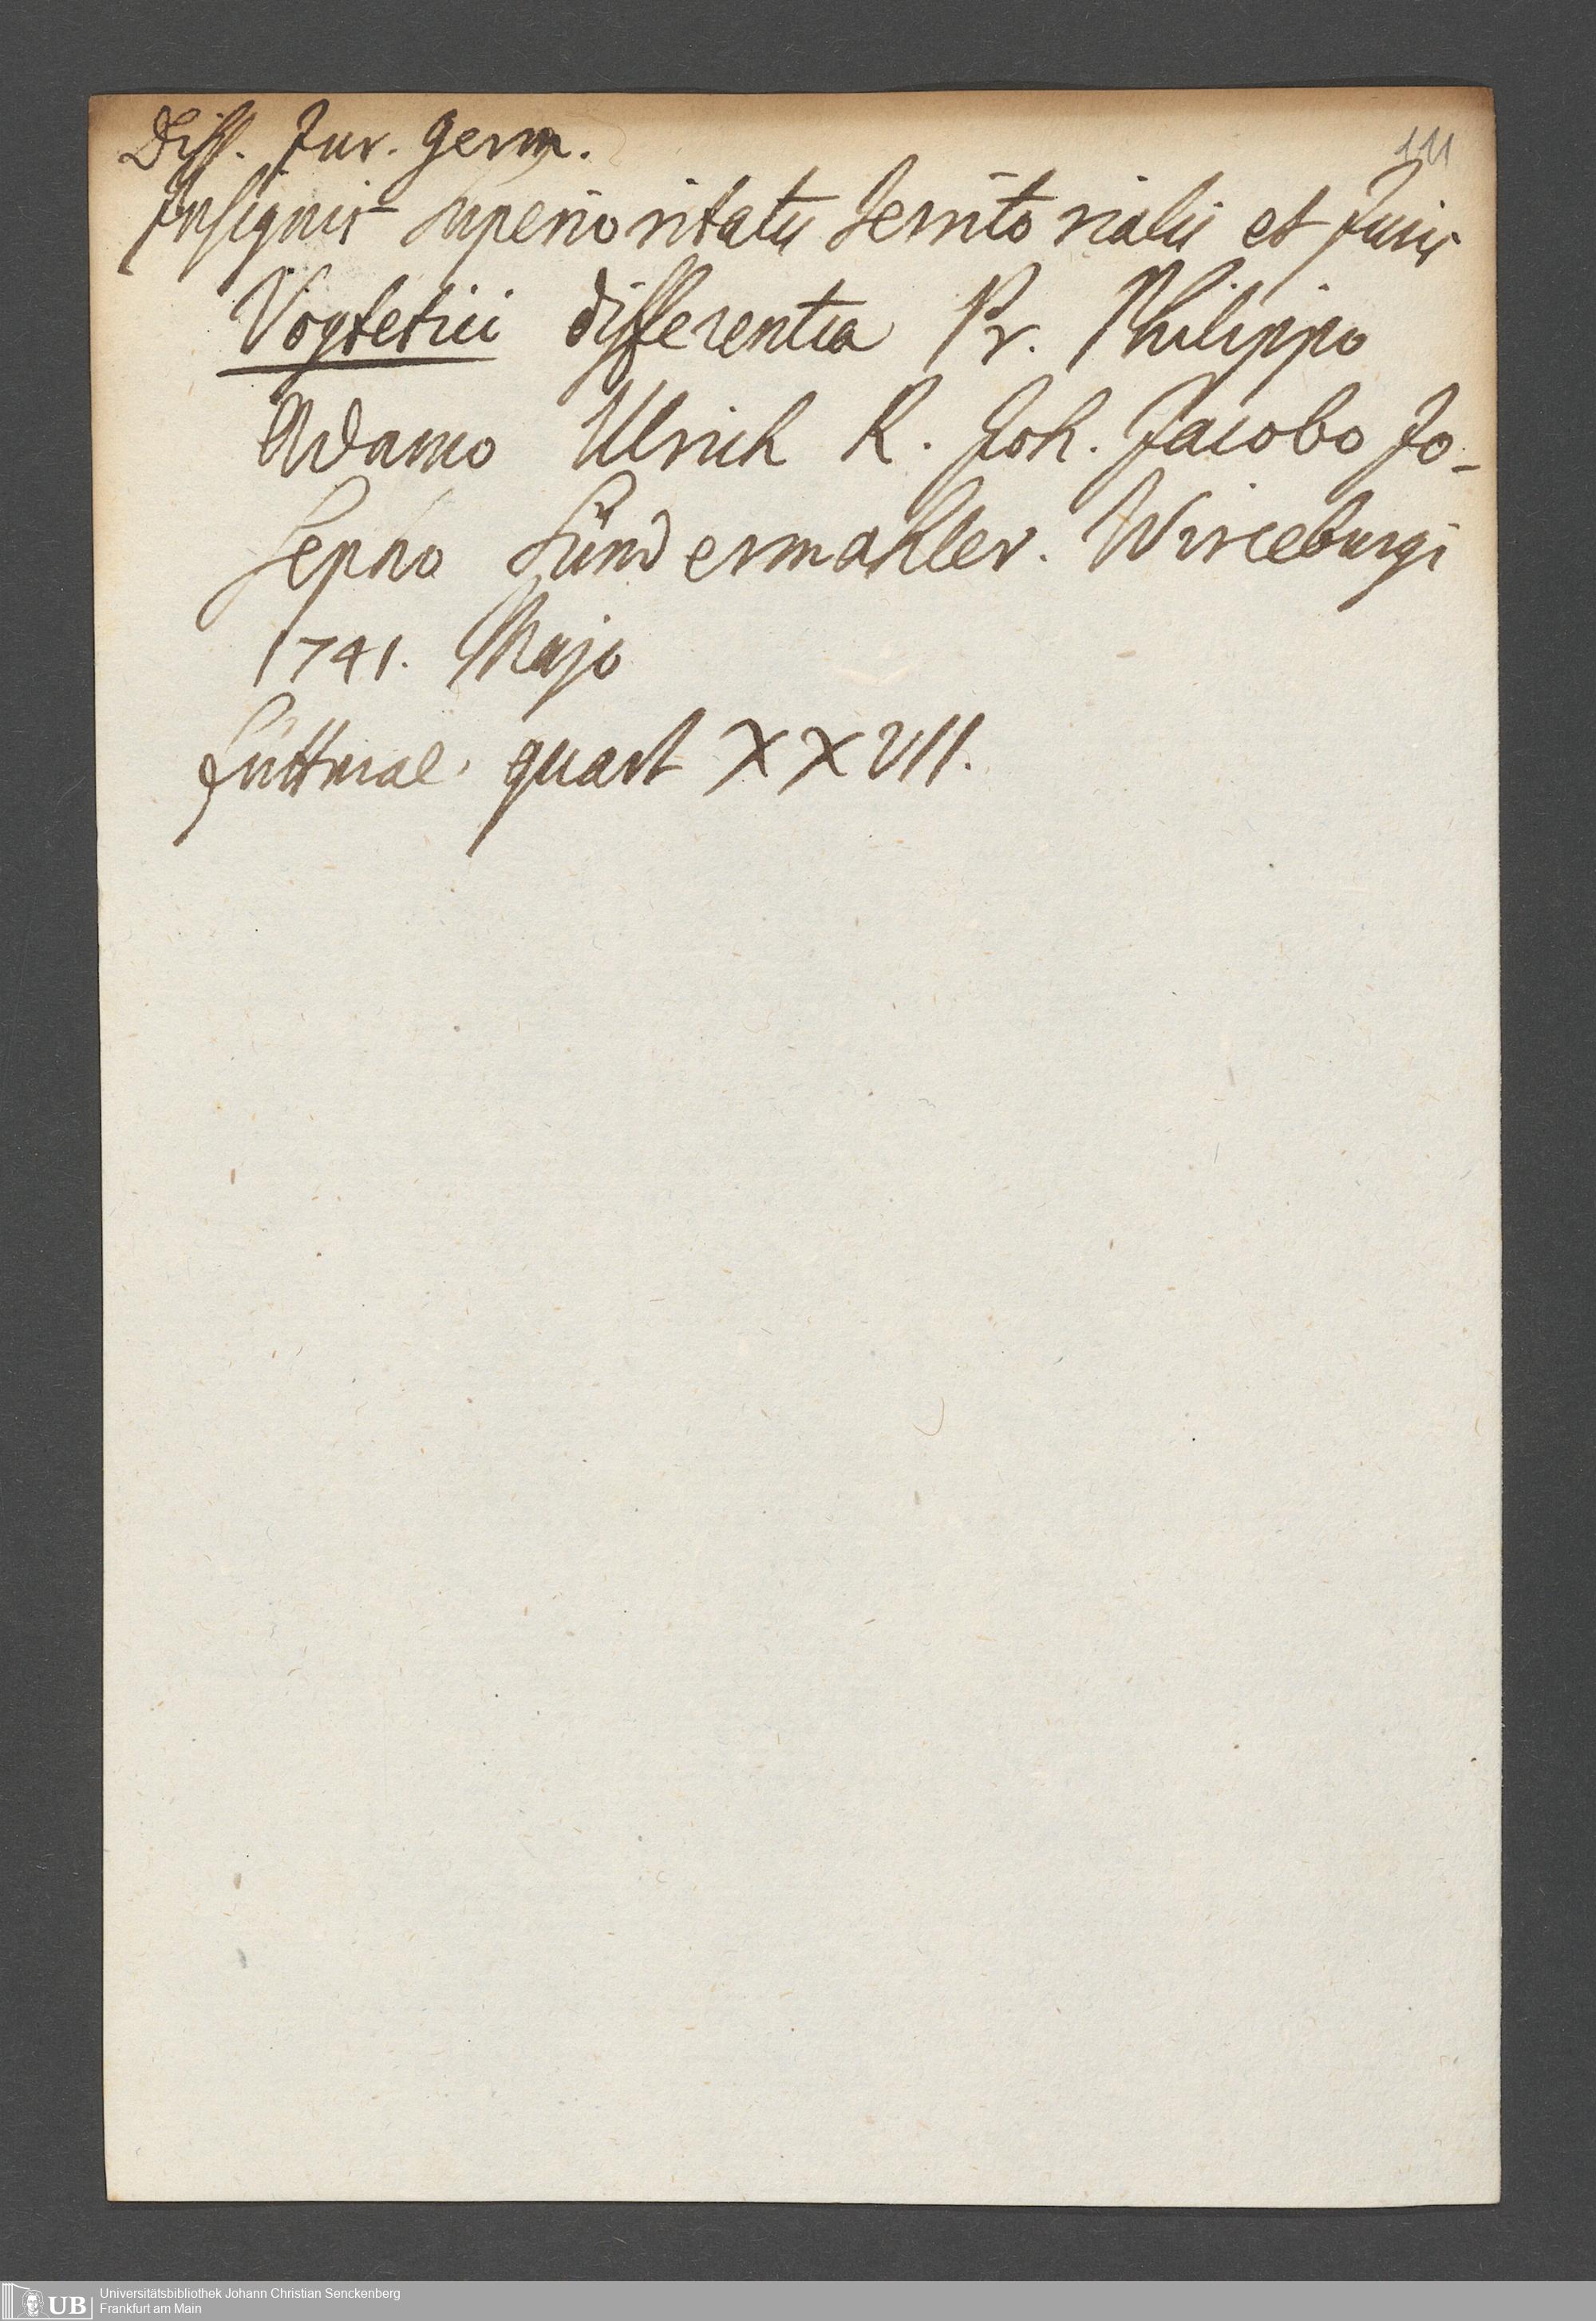 Diss. Jur. Germ.
111
Insignis Superioritatis Territorialis et Juris
Vogteitici differentia Pr. Philippo
Adamo Ulrich R. Joh. Jacobo Jo-
sepho Sündermahler. Wirceburgi
1741. Majo
quart XXVII.
UB Universitätsbibliothek Johann Christian Senckenberg
Frankfurt am Main